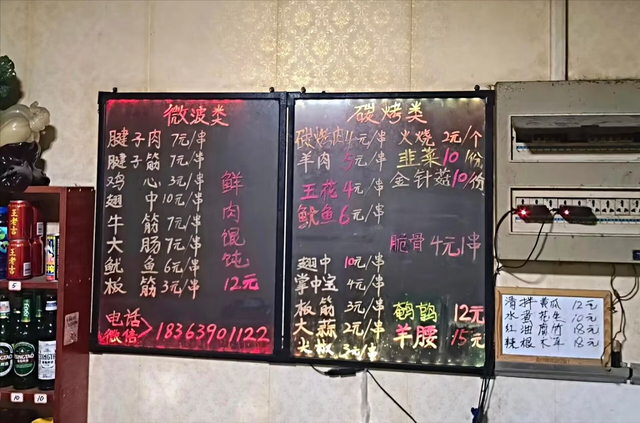 微波类
腱子肉 7元/串
腱子筋 7元/串
鸡心 3元/串
翅中 10元/串
牛筋 7元/串
大肠 7元/串
鱿鱼 6元/串
板筋 3元/串
鲜肉馄饨
12元
电话
微信
18363901122
碳烤类
碳烤肉 4元/串
羊肉 5元/串
五花 4元/串
鱿鱼 6元/串
翅中 10元/串
掌中宝 4元/串
板筋 3元/串
大蒜 2元/串
火椒 3元/串
火烧 2元/个
韭菜 10/份
金针菇 10/份
脆骨 4元/串
鹌鹑 12元
羊腰 15元
清拌黄瓜 12元
水煮花生 10元
红油腐竹 18元
辣根木耳 18元
王老吉
王老吉
5
10
10